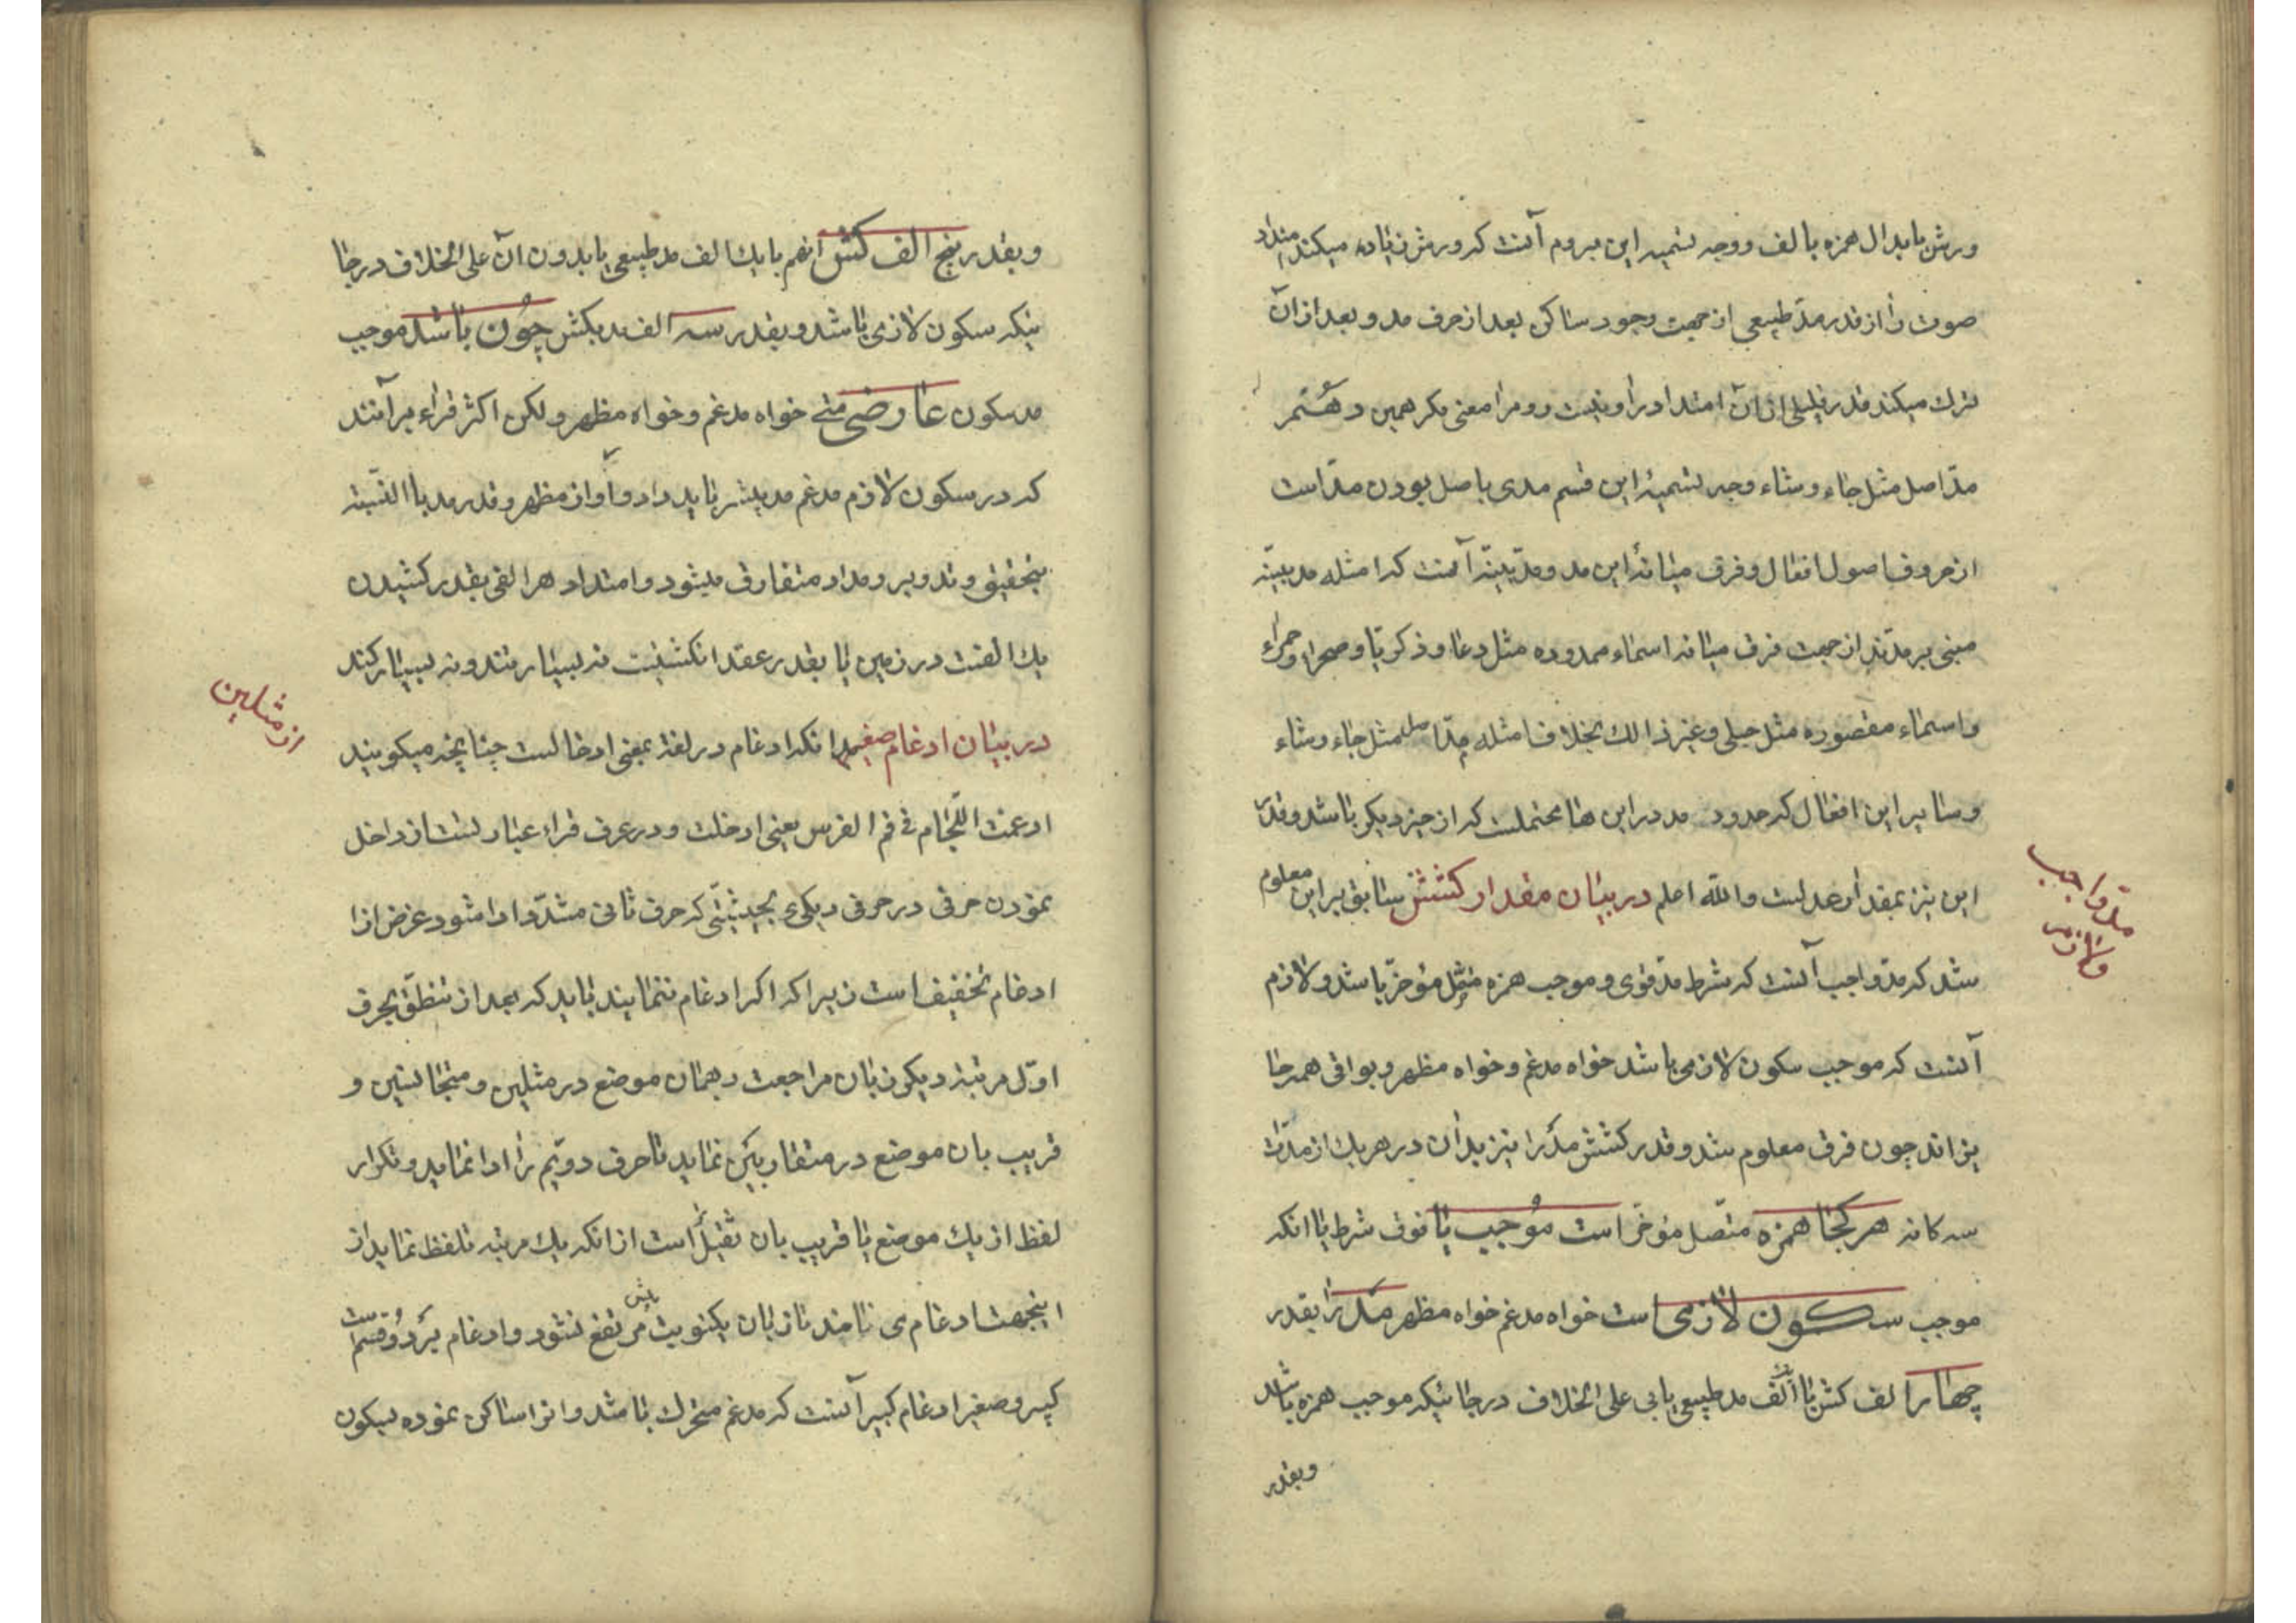 ورش بابدال همزه بالف ووجه تسمیه این بروم آنست که ورش زیاده میکند امتداد
صوت را از قدر مدّ طبیعی از جهت وجود ساکن بعد از حرف مد و بعد از آن
ترک میکند قدر قلیلی از آن امتداد را ونیست روم را معنی مکر همین دهشتم
مدّ اصل مثل جاء وشاء وجه تسمیهٔ این قسم مدی باصل بودن مدّ است
از حروف اصول افعال وفرق میانهٔ این مد ومدّ بنیّه آنست که امثله مد بنیّه
مبنی بر مدّند از جهت فرق میانه اسماء ممدوده مثل دعا وذکریّا وصحراء وحمراء
واسماء مقصوره مثل حبلی وغیر ذالک بخلاف امثله مدّ اصل مثل جاء وشاء
وسایر این افعال که حدود مد در این ها محتملست که از چیز دیکر باشد وقدر
این نیز بمقدار عدلست والله اعلم در بیان مقدار کشش سابق بر این معلوم
شد که مدّ واجب آنست که شرط مدّ قوی وموجب همزه متّصل مؤخّر باشد ولازم
آنست که موجب سکون لازمی باشد خواه مدغم وخواه مظهر وبواقی همه جا
یز اند چون فرق معلوم شد وقدر کشش مدّ را نیز بدان در هر یک از مدّات
سه کانه هر کجا همزه متّصل مؤخّر است موُجب با قوی شرط یا انکه
موجب سکون لازمی است خواه مدغم خواه مظهر مدّ را بقدر
چهار الف کش با الف مد طبیعی یا بی علی الخلاف در جائیکه موجب همزه باشد
وبقدر
مدّ واجب
ولازم
وبقدر پنج الف کش انهم با یک الف مد طبیعی یا بدون آن علی الخلاف در جا
ئیکه سکون لازمی باشد وبقدر سه الف مد بکش چوُن باشد موجب
مد سکون عارضی خواه مدغم وخواه مظهر ولکن اکثر قراء بر آنند
که در سکون لازم مدغم مد بیشتر باید داد واو از مظهر وقدر مد باالنّسبة
بتحقیق وتدویر ومداد متفاوق میشود وامتداد هر الفی بقدر کشیدن
یک الفست در زمین یا بقدر عقد انکشتیست نه بسیار تند ونه بسیار کند
در بیان ادغام صغیر بدانکه ادغام در لغة بمعنی ادخالست چنانچه میکویند
ادغمت اللّجام فی فم الفرس یعنی ادخلت ودر عرف قراء عبارتست از داخل
نمودن حرفی در حرفی دیکری بحیثیّتی که حرف ثانی مشدّد ادا شود غرض از ا
ادغام تخفیف است زیرا که اکر ادغام ننمایند باید که بعد از تنطّق بحرف
اوّل مرتبه دیکر زبان مراجعت بهمان موضع در مثلین ومتجانسین و
قریب بان موضع در متقاربین نماید تا حرف دویّم را ادا نماید وتکرار
لفظ از یک موضع یا قریب بان ثقیل است از انکه یک مرتبه تلفظ نماید از
اینجهت ادغام می نامند تا زبان یکنوبت بیش مرتفع نشود وادغام بر دُو قسم است
کبیر وصغیر ادغام کبیر آنست که مدغم متحرک باشد وانرا ساکن نموده بسکون
از مثلین